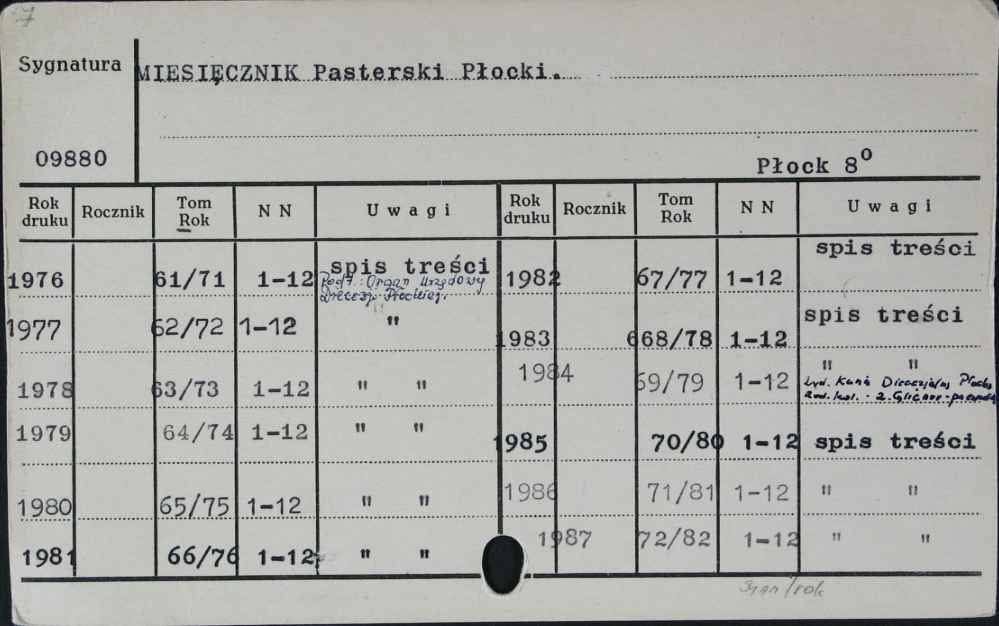 7
Sygnatura MIESIĘCZNIK Pasterski Płocki.
09880
Płock 8⁰
Rok druku Rocznik Tom Rok N N Uwagi Rok druku Rocznik Tom Rok N N Uwagi
1976 61/71 1-12 spis treści
Podt.: Organ Urzędowy
Diecezji Płockiej.
1977 62/72 1-12 "
1978 63/73 1-12 " "
1979 64/74 1-12 " "
1980 65/75 1-12 " "
1981 66/76 1-12 " "
1982 67/77 1-12 spis treści
1983 668/78 1-12 spis treści
1984 69/79 1-12 " "
Wyd. Kuria Diecezjalna
Red. kol.
1985 70/80 1-12 spis treści
1986 71/81 1-12 " "
1987 72/82 1-12 " "
/rok